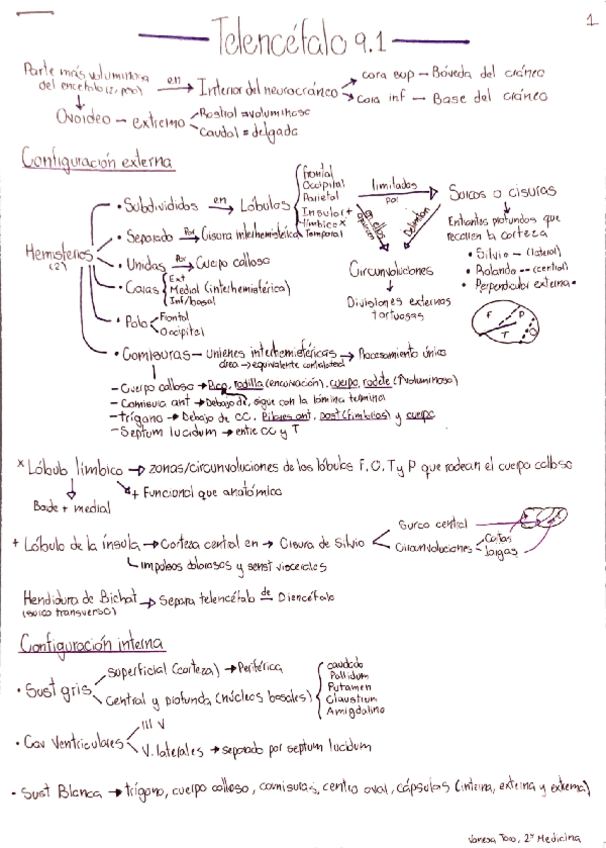 1
Telencéfalo 9.1
Parte más voluminosa del encéfalo → en Interior del neurocráneo
cara sup — Bóveda del cráneo
Cara inf — Base del cráneo
Ovoideo — extremo
Rostral = voluminoso
Caudal = delgado
Configuración externa
Hemisferios (2)
• Subdivididos en → Lóbulos
frontal
Occipital
Parietal
Insular +
límbico x
Temporal
limitados por
Surcos o cisuras
Entrantes profundos que
recorren la corteza
• Silvio — (lateral)
• Rolando -- (central)
• Perpendicular externa •
F P T O
Delimitan
Circunvoluciones
Divisiones externas
tortuosas
• Separado por → Cisura interhemisférica
• Unidas por → Cuerpo calloso
• Caras
Ext
Medial (interhemisférica)
Inf/basal
• Polo
Frontal
Occipital
• Comisuras — uniones interhemisféricas → Procesamiento único
área → equivalente contralateral
— Cuerpo calloso → Pico, rodilla (encorvación), cuerpo, rodete (↑voluminoso)
— Comisura ant → Debajo de, sigue con la lámina termina
— trígono → Debajo de CC, Pilares ant, post (fimbrias) y cuerpo
— Septum lucidum → entre CC y T
x Lóbulo límbico → zonas/circunvoluciones de los lóbulos F, O, T y P que rodean el cuerpo calloso
+ Funcional que anatómico
medial
+ Lóbulo de la ínsula → Corteza central en → Cisura de Silvio
Surco central
Circunvoluciones
Cortas
largas
impulsos dolorosos y sensit viscerales
Hendidura de Bichat → Separa telencéfalo de Diencéfalo
(surco transverso)
Configuración interna
• Sust gris
superficial (corteza) → Periférica
Central y profunda (núcleos basales)
caudado
Pallidum
Putamen
Claustrum
Amigdalino
• Cav Ventriculares
III V
V. laterales → separado por septum lucidum
• Sust Blanca → trígono, cuerpo calloso, comisuras, centro oval, cápsulas (interna, externa y extrema)
Vanesa Toro, 2º Medicina